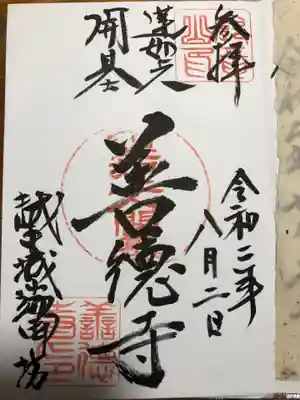 参拝
令和二年
八月二日
蓮如上人
開基
善德寺
越中城端御坊